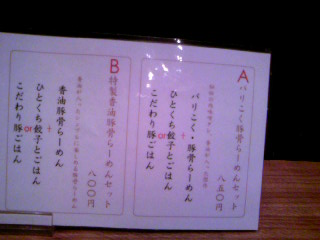 A
パリこく豚骨らーめんセット
八五〇円
パリこく豚骨らーめん
+
ひとくち餃子とごはん
or
こだわり豚ごはん
B
特製香油豚骨らーめんセット
八〇〇円
香油豚骨らーめん
+
ひとくち餃子とごはん
or
こだわり豚ごはん